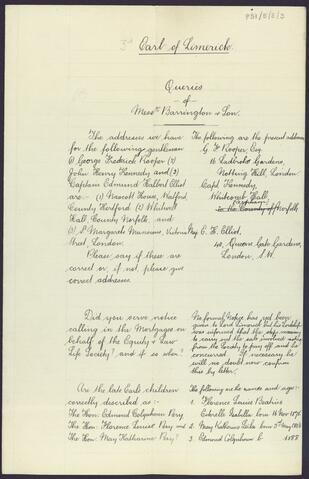 P51/5/5/3
3rd
Earl of Limerick
Queries
of
Messrs Barrington & Son.
The addresses we have
for the following gentlemen
(1) George Frederick Rooper (2)
John Henry Kennedy and (3)
Captain Edmund Halbert Elliot
are :- (1) Nascott House, Watford,
County Hertford (2) Whitwell
Hall, County Norfolk, and
(3) St Margarets Mansions, Victoria
Street, London.
Please say if these are
correct or, if not, please give
correct addresses
The following are the present addresses
G F Rooper Esq
16 Ladbroke Gardens,
Notting Hill, London.
Capt Kennedy,
Whitwell Hall,
Norfolk
E. H. Elliot.
Queens Gate Gardens,
London, S.W.
Did you serve notice
calling in the Mortgage on
behalf of the Equity & Law
Life Society? and if so when?
No formal Notice has yet been
given to Lord Limerick but his Lordship
was informed that the
to carry out the sale involved
from the Society to pay off and he
concurred. If necessary he
will no doubt now confirm
this by letter.
Are the late Earl's children
correctly described as :-
The Hon. Edmond Colquhoun Pery
The Hon. Florence Louise Pery and
The Hon. Mary Katharine Pery?
The following are the names and ages :-
1. Florence Louise Beatrice
Gabrielle Isabella born 16 Nov
2. Mary Katharine born 5th May
3. Edmond Colquhoun b. 1888